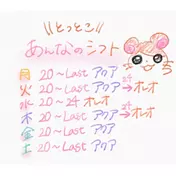 \\とっとこ//
あんなのシフト
月 20~Last アクア
火 20~Last アクア 24→オレオ
水 20~24 オレオ
木 20~Last アクア 24→オレオ
金 20~Last アクア
土 20~Last アクア